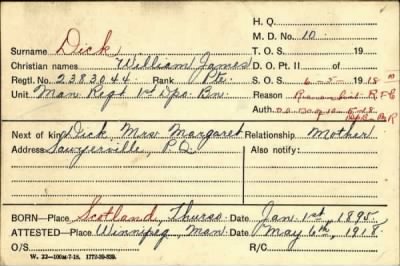 H. Q.
Surname Dick M. D. No. 10.
Christian names William James T. O. S. 19
Regtl. No. 2383044 Rank Pte. D. O. Pt. II of 19
Unit Man Regt 1st Dpo. Bn. S. O. S. 6-5- 1918
Reason R F C
Auth.
Next of kin Dick, Mrs. Margaret Relationship Mother
Address Sawyerville, P.Q. Also notify:
BORN—Place Scotland, Thurso. Date Jan. 1st, 1895
ATTESTED—Place Winnipeg, Man. Date May 6th, 1918.
O/S R/C
W. 22—100M-7-18. 1772-39-839.